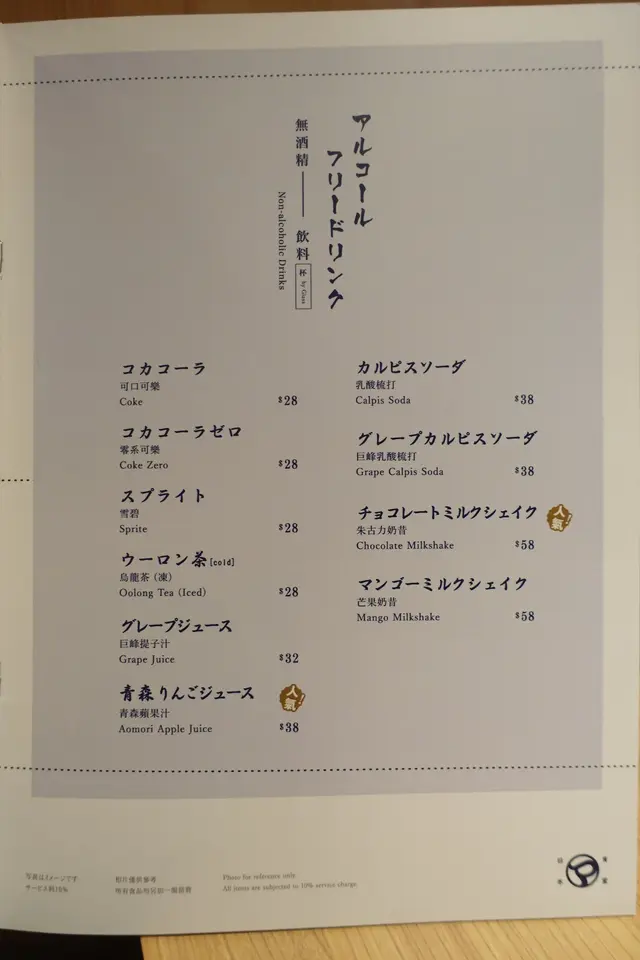 アルコール
フリードリンク
無酒精 — 飲料 杯 by Glass
Non-alcoholic Drinks
コカコーラ
可口可樂
Coke $28
コカコーラゼロ
零系可樂
Coke Zero $28
スプライト
雪碧
Sprite $28
ウーロン茶 [cold]
烏龍茶 (凍)
Oolong Tea (Iced) $28
グレープジュース
巨峰提子汁
Grape Juice $32
青森りんごジュース 人氣!
青森蘋果汁
Aomori Apple Juice $38
カルピスソーダ
乳酸梳打
Calpis Soda $38
グレープカルピスソーダ
巨峰乳酸梳打
Grape Calpis Soda $38
チョコレートミルクシェイク 人氣!
朱古力奶昔
Chocolate Milkshake $58
マンゴーミルクシェイク
芒果奶昔
Mango Milkshake $58
写真はイメージです
サービス料10%
相片僅供參考
所有食品均另加一服務費
Photo for reference only
All items are subjected to 10% service charge